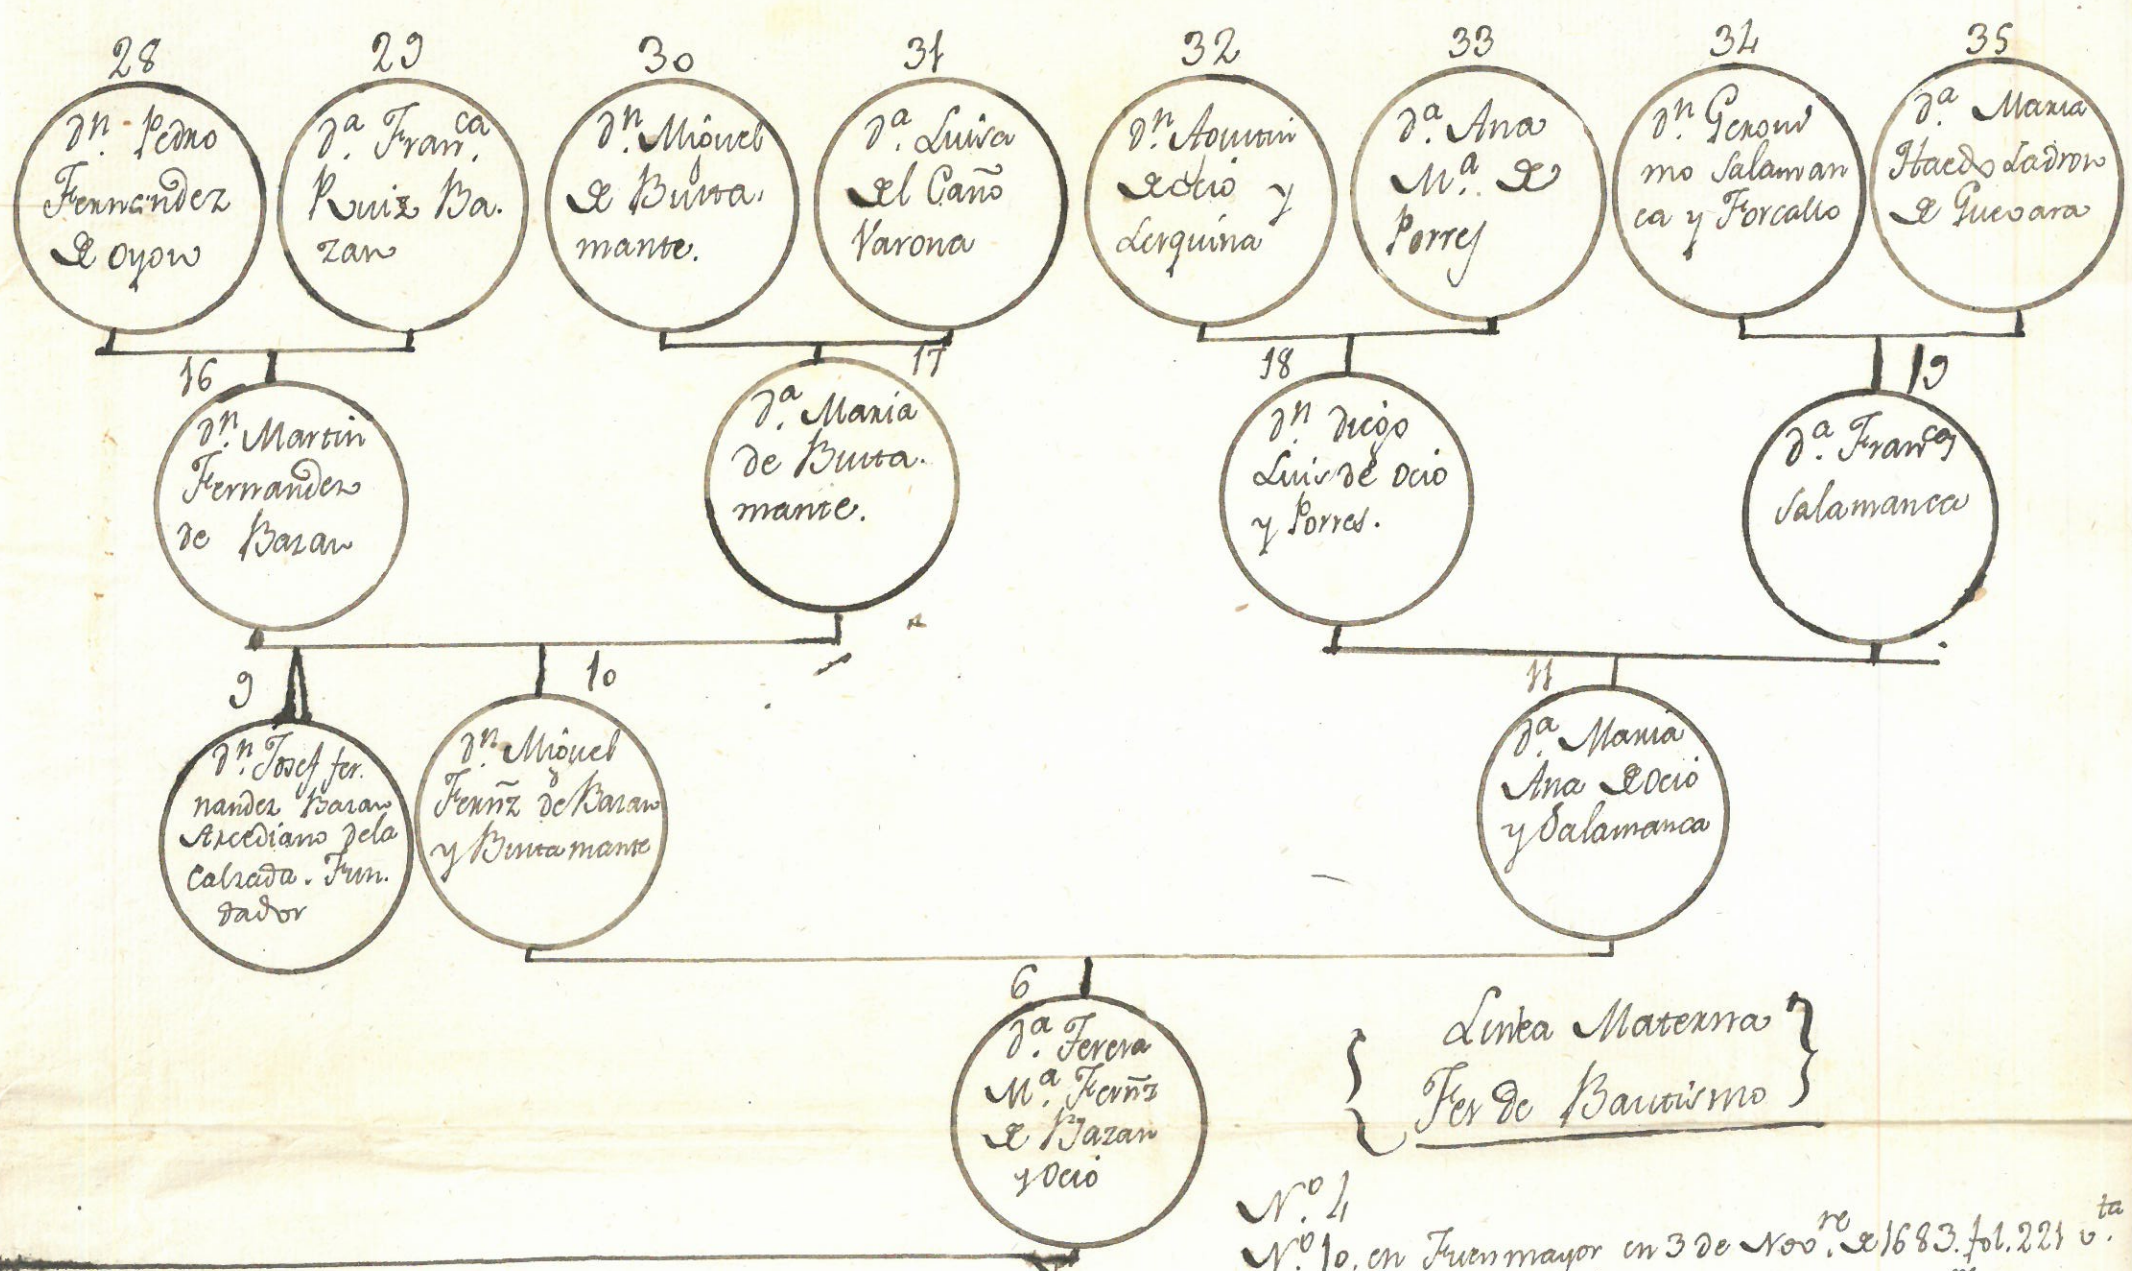 28
dⁿ. Pedro
Fernandez
de oyon
29
dª. Franᶜᵃ.
Ruiz Ba.
zan
30
dⁿ. Miguel
de Busta.
mante.
31
dª. Luisa
del Caño
Varona
32
dⁿ. Agustin
de Ocio y
Lezquina
33
dª. Ana
Mª. de
Porres
34
dⁿ. Geroni
mo Salaman
ca y Forcallo
35
dª. Maria
Haedo Ladron
de Guevara
16
dⁿ. Martin
Fernandez
de Bazan
17
dª. Maria
de Busta.
mante.
18
dⁿ. Diego
Luis de Ocio
y Porres.
19
dª. Franᶜᵃ
Salamanca
9
dⁿ. Josef fer.
nandez Bazan
Arcediano dela
Calzada. Fun.
dador
10
dⁿ. Miguel
Fernz̃ de Bazan
y Bustamante
11
dª. Maria
Ana de Ocio
y Salamanca
6
dª. Teresa
Mª. Fernz̃
de Bazan
y Ocio
Linea Materna
Fes de Bautismo
Nº. 4
Nº. 10. en Fuenmayor en 3 de Novʳᵉ. de 1683. fol. 221 v.ᵗᵃ